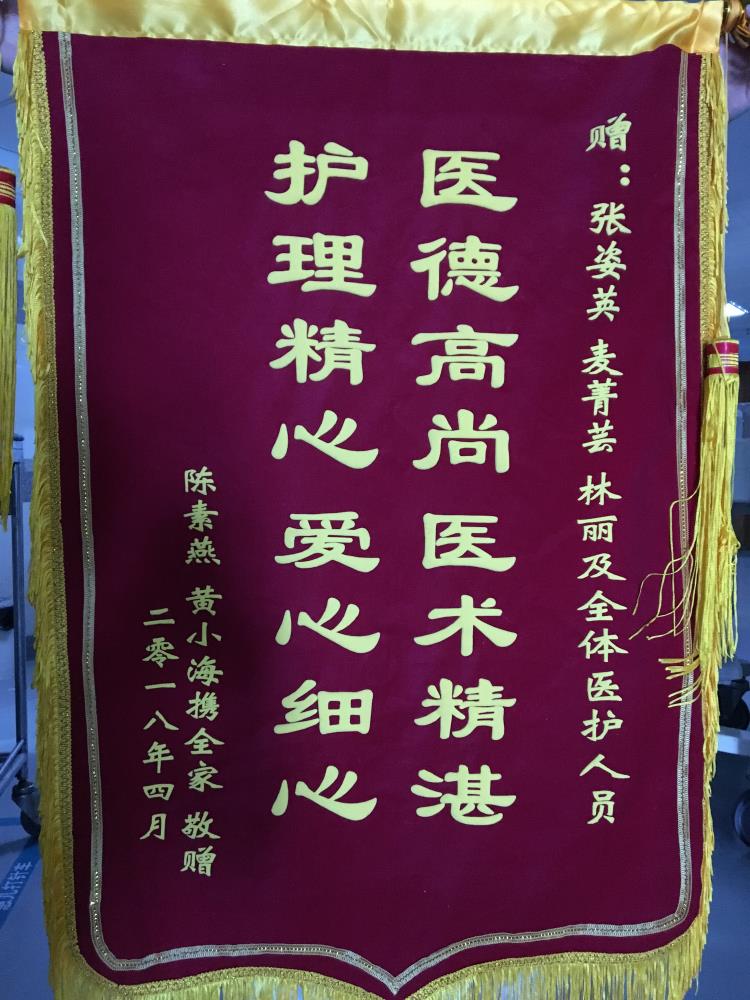 赠：张姿英 麦菁芸 林丽及全体医护人员
医德高尚 医术精湛
护理精心 爱心细心
陈素燕 黄小海携全家 敬赠
二零一八年四月